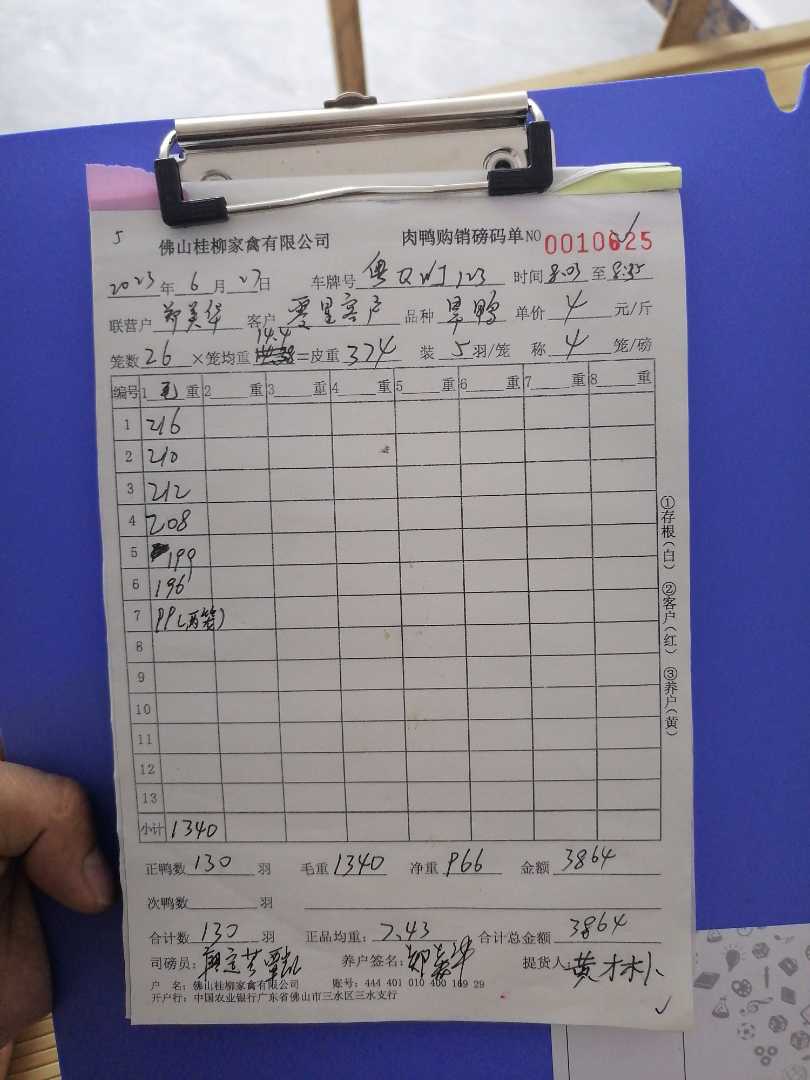 5
佛山桂柳家禽有限公司 肉鸭购销磅码单 NO 0010625
2023年6月27日 车牌号 粤 123 时间 8:03 至 8:35
联营户 郑美华 客户 零星客户 品种 旱鸭 单价 4 元/斤
笼数 26 ×笼均重 14.4 =皮重 374 装 5 羽/笼 称 4 笼/磅
编号 1 毛 重 2 重 3 重 4 重 5 重 6 重 7 重 8 重
1 216
2 210
3 212
4 208
5 199
6 196
7 99(两笼)
8
9
10
11
12
13
小计 1340
①存根(白) ②客户(红) ③养户(黄)
正鸭数 130 羽 毛重 1340 净重 966 金额 3864
次鸭数 羽
合计数 130 羽 正品均重: 7.43 合计总金额 3864
司磅员: 养户签名: 郑美华 提货人: 黄木
户 名: 佛山桂柳家禽有限公司 账号: 444 401 010 400 169 29
开户行: 中国农业银行广东省佛山市三水区三水支行